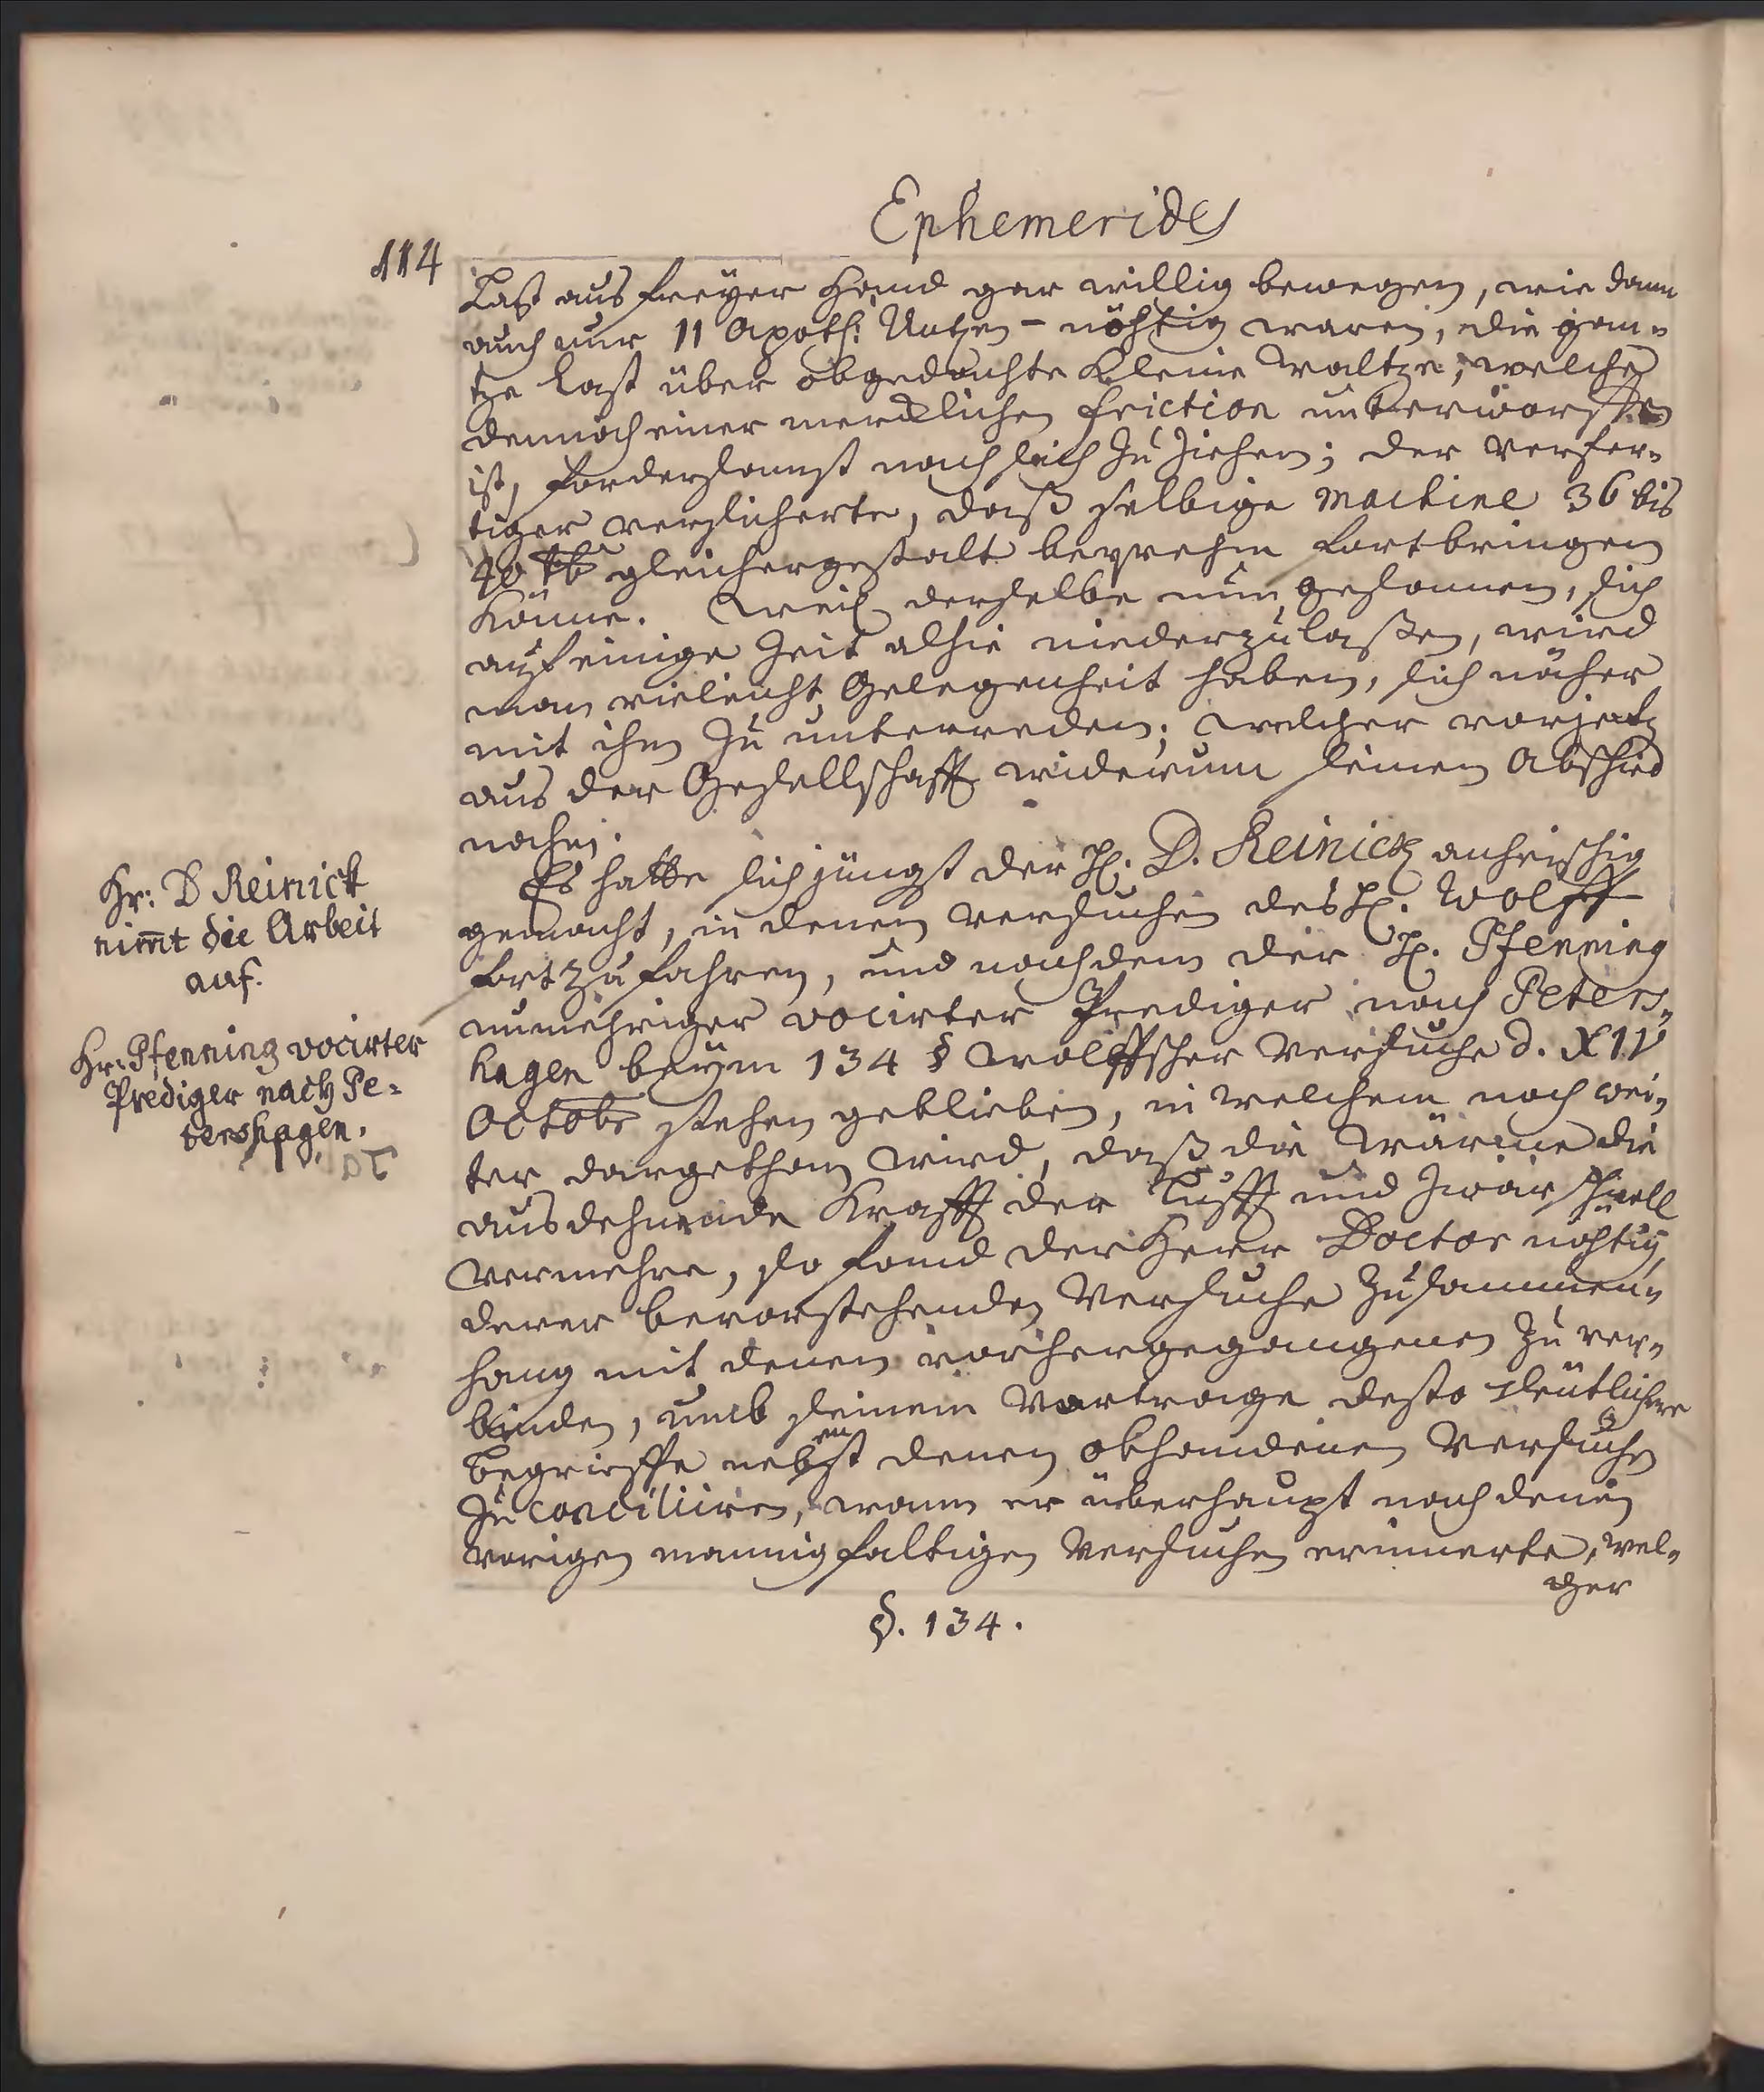 Ephemerides
114
Last aus freyer Hand gar willig bewegen, wie dann
auch nur 11 Apoth: Untzen - nöhtig waren, die gan„
tze Last über obgedachte kleine Waltze, welche
dennoch einer mercklichen Friction unterworffen
ist, fordersamst nach sich zu ziehen; der Verfer„
tiger versicherte, daß selbige Machine 36 bis
40 gleichergestalt beqvehm fortbringen
könne. Weil derselbe nun gesonnen, sich
auf einige Zeit alhie niederzulaßen, wird
man vieleicht Gelegenheit haben, sich näher
mit ihm zu unterreden; welcher vorjetz
aus der Gesellschafft widerum seinen Abschied
nahm.
Es hatte sich jüngst der H. D. Reinick anheischig
gemacht, in denen Versuchen des H. Wolff
fortzufahren, und nachdem der H. Pfenning
nunmehriger vocirter Prediger nach Peters„
hagen beym 134 § Wolffscher Versuche d. XIV
Octobr stehen geblieben, in welchem noch wei„
ter dargethan wird, daß die Wärme die
ausdehnende Krafft der Lufft und zwar schnell
vermehre, so fand der Herr Doctor nöhtig,
derer bevorstehenden Versuche Zusammen„
hang mit denen vorhergegangenen zu ver„
binden, umb seinem Vortrage desto deütlichere
Begrieffe nebenst denen obhandenen Versuchen
zu conciliiren, wann er überhaupt nach denen
vorigen mannigfaltigen Versuchen erinnerte, wel„
cher
§. 134.
Hr: D Reinick
nim̅t die Arbeit
auf.
Hr: Pfenning vocirter
Prediger nach Pe=
tershagen.